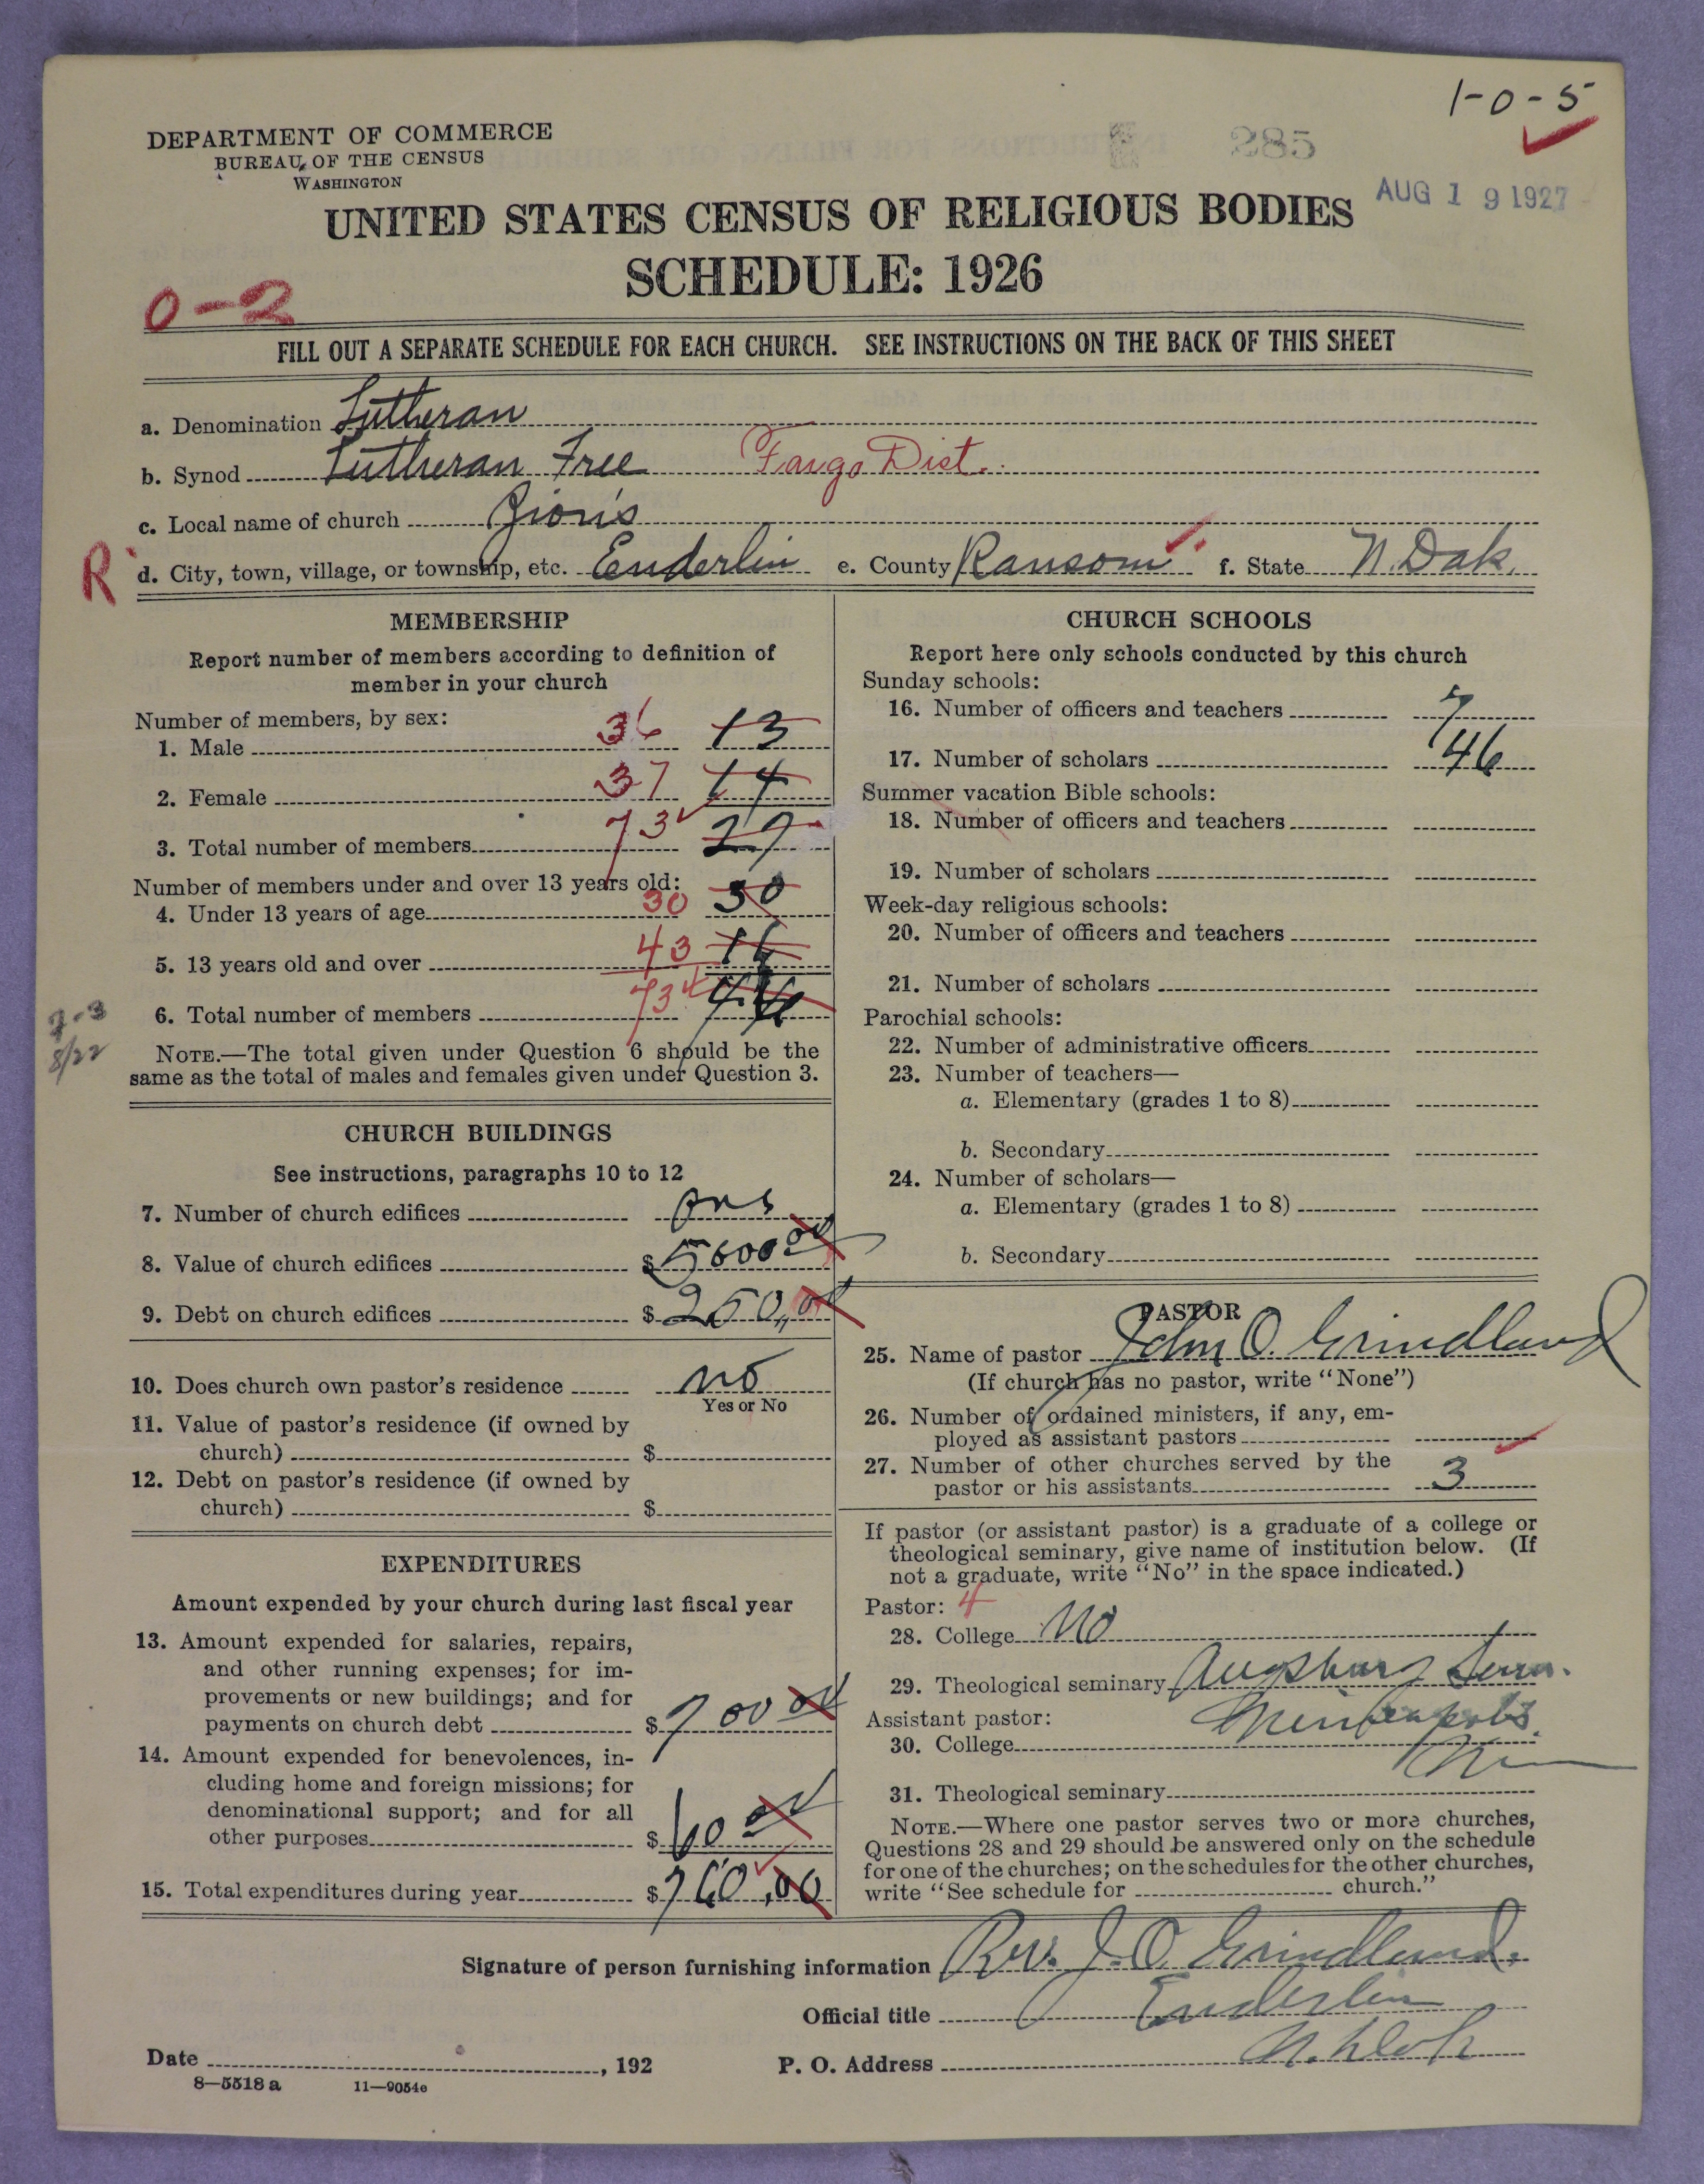 1-0-5
DEPARTMENT OF COMMERCE
BUREAU OF THE CENSUS
WASHINGTON
285
AUG 19 1927
UNITED STATES CENSUS OF RELIGIOUS BODIES
SCHEDULE: 1926
0-2
FILL OUT A SEPARATE SCHEDULE FOR EACH CHURCH. SEE INSTRUCTIONS ON THE BACK OF THIS SHEET
a. Denomination Lutheran
b. Synod Lutheran Free Fargo Dist.
c. Local name of church Zion's
R d. City, town, village, or township, etc. Enderlin e. County Ransom f. State N. Dak.
MEMBERSHIP
Report number of members according to definition of
member in your church
Number of members, by sex:
1. Male 36 13
2. Female 37 14
3. Total number of members 73 27
Number of members under and over 13 years old:
4. Under 13 years of age 30 30
5. 13 years old and over 43 16
6. Total number of members 73 46
8/22
NOTE.—The total given under Question 6 should be the
same as the total of males and females given under Question 3.
CHURCH BUILDINGS
See instructions, paragraphs 10 to 12
7. Number of church edifices One
8. Value of church edifices $5600 00
9. Debt on church edifices $250,00
10. Does church own pastor's residence no
Yes or No
11. Value of pastor's residence (if owned by
church) $
12. Debt on pastor's residence (if owned by
church) $
EXPENDITURES
Amount expended by your church during last fiscal year
13. Amount expended for salaries, repairs,
and other running expenses; for im-
provements or new buildings; and for
payments on church debt $700 00
14. Amount expended for benevolences, in-
cluding home and foreign missions; for
denominational support; and for all
other purposes $60 00
15. Total expenditures during year $760,00
CHURCH SCHOOLS
Report here only schools conducted by this church
Sunday schools:
16. Number of officers and teachers 7
17. Number of scholars 46
Summer vacation Bible schools:
18. Number of officers and teachers
19. Number of scholars
Week-day religious schools:
20. Number of officers and teachers
21. Number of scholars
Parochial schools:
22. Number of administrative officers
23. Number of teachers—
a. Elementary (grades 1 to 8)
b. Secondary
24. Number of scholars—
a. Elementary (grades 1 to 8)
b. Secondary
PASTOR
25. Name of pastor John O. Grindland
(If church has no pastor, write "None")
26. Number of ordained ministers, if any, em-
ployed as assistant pastors
27. Number of other churches served by the
pastor or his assistants 3
If pastor (or assistant pastor) is a graduate of a college or
theological seminary, give name of institution below. (If
not a graduate, write "No" in the space indicated.)
Pastor: 4
28. College No
29. Theological seminary Augsburg Sem.
Assistant pastor: Minneapolis
30. College
31. Theological seminary
NOTE.—Where one pastor serves two or more churches,
Questions 28 and 29 should be answered only on the schedule
for one of the churches; on the schedules for the other churches,
write "See schedule for church."
Signature of person furnishing information Rev. J. O. Grindland.
Official title Enderlin
Date , 192 P. O. Address N. Dak
8—5518 a 11—9054e